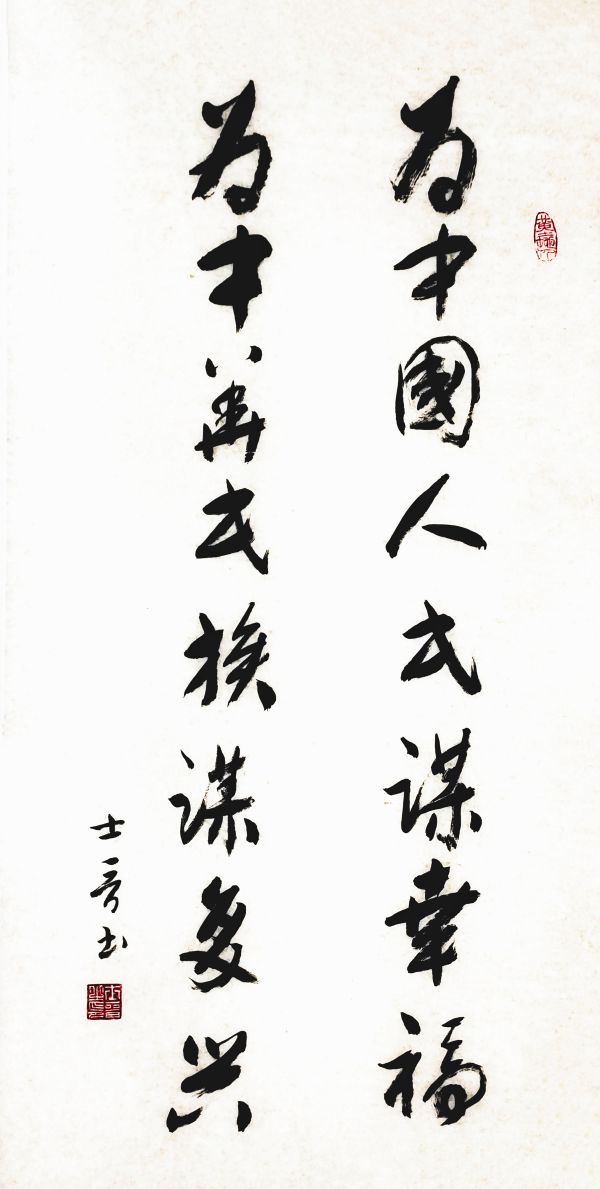 为中國人民谋幸福
为中華民族谋复兴
士 书